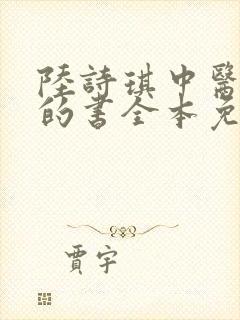 陸詩琪中醫
的書全本免
賈宇